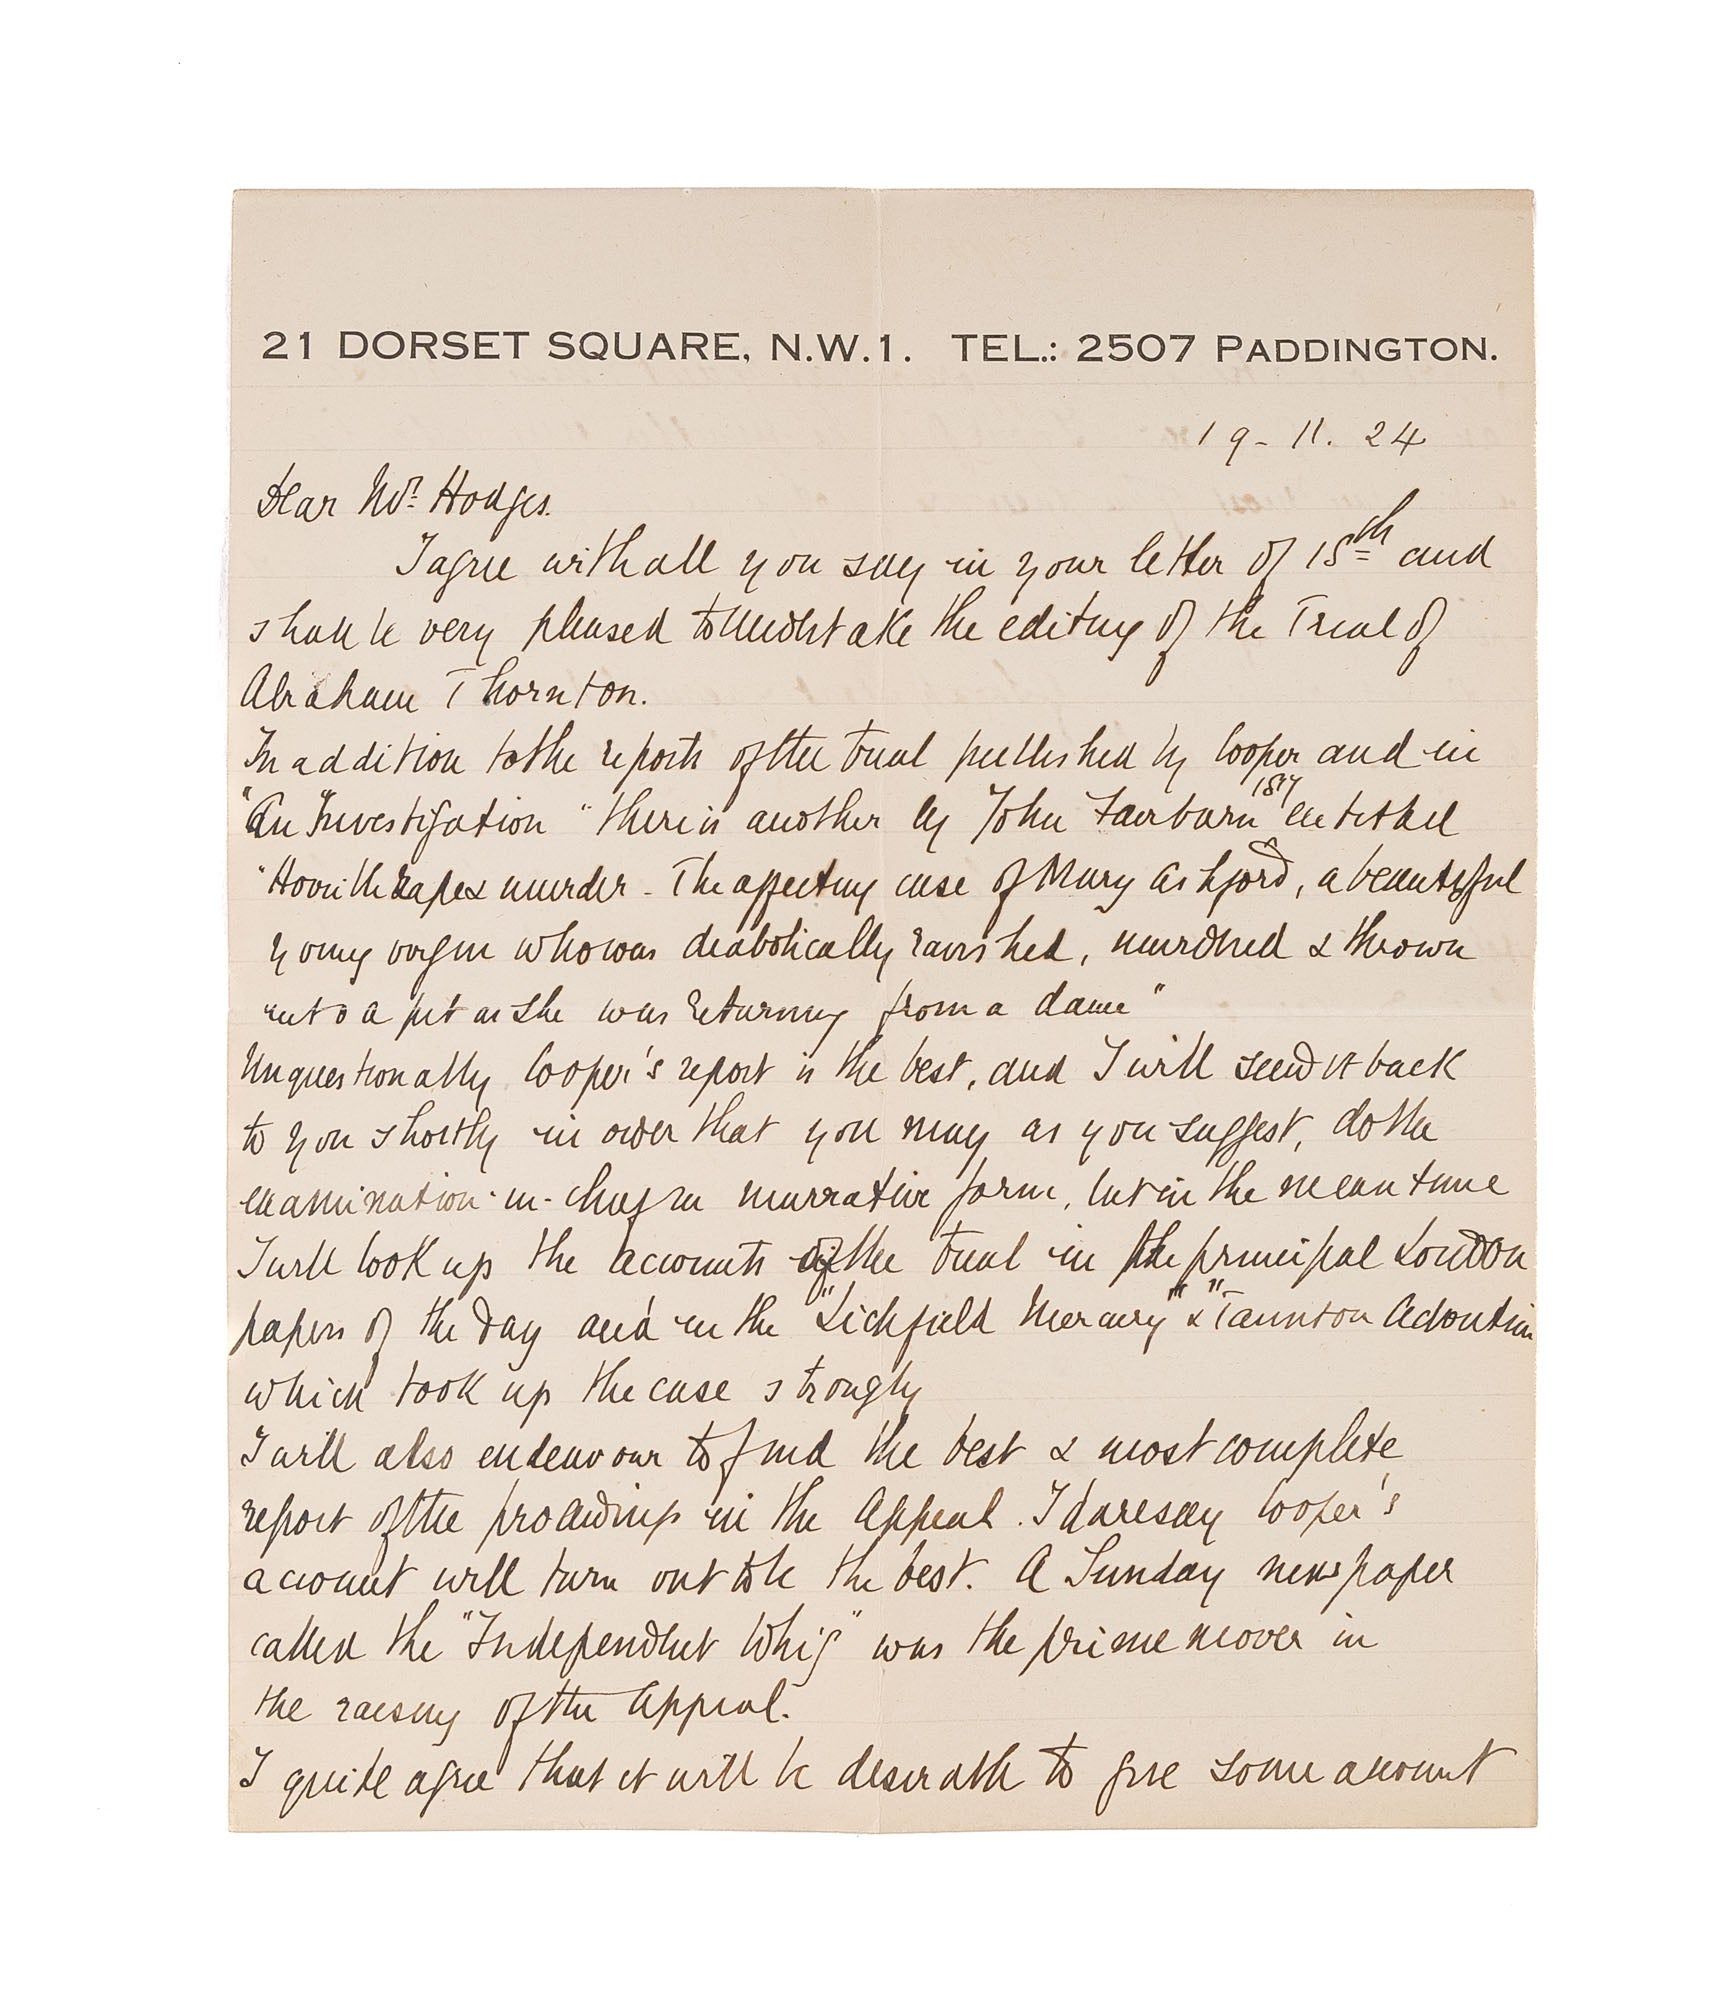 21 DORSET SQUARE, N.W.1. TEL.: 2507 PADDINGTON.
19-11.24
Dear Mr. Hodges.
I agree with all you say in your letter of 15th and
shall be very pleased to undertake the editing of the Trial of
Abraham Thornton.
In addition to the reports of the trial published by Cooper and in
"An Investigation" there is another by John Fairburn 1817 entitled
"Horrible Rape & murder - The affecting case of Mary Ashford, a beautiful
young virgin who was diabolically ravished, murdered & thrown
into a pit as she was returning from a dance"
Unquestionably Cooper's report is the best, and I will send it back
to you shortly in order that you may as you suggest, do the
examination-in-chief in narrative form, but in the meantime
I will look up the accounts of the trial in the principal London
papers of the day and in the "Lichfield Mercury" & "Taunton
which took up the case strongly
I will also endeavour to find the best & most complete
report of the proceedings in the Appeal. I daresay Cooper's
account will turn out to be the best. A Sunday newspaper
called the "Independent Whig" was the prime mover in
the raising of the Appeal.
I quite agree that it will be desirable to give some account